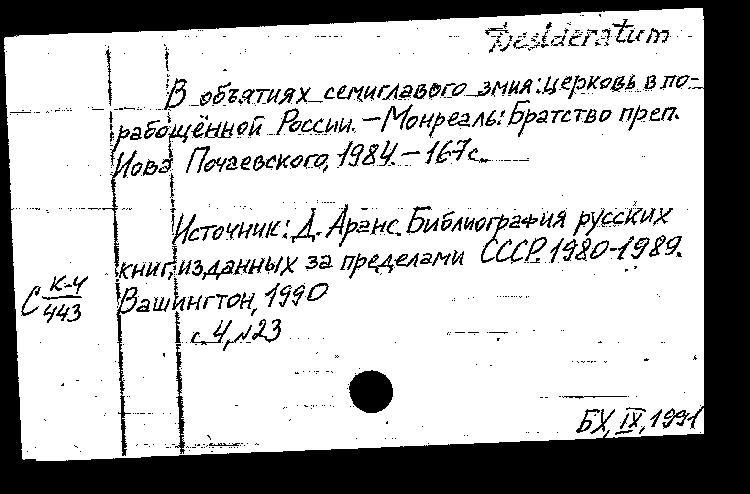 Desideratum
В объятиях семиглавого змия: церковь в по-
рабощённой России. – Монреаль: Братство преп.
Иова Почаевского, 1984. – 167с.
Источник: Д. Аранс. Библиография русских
книг, изданных за пределами СССР. 1980-1989.
С К-4/443 Вашингтон, 1990
с. 4, №23
БХ, IX, 1991